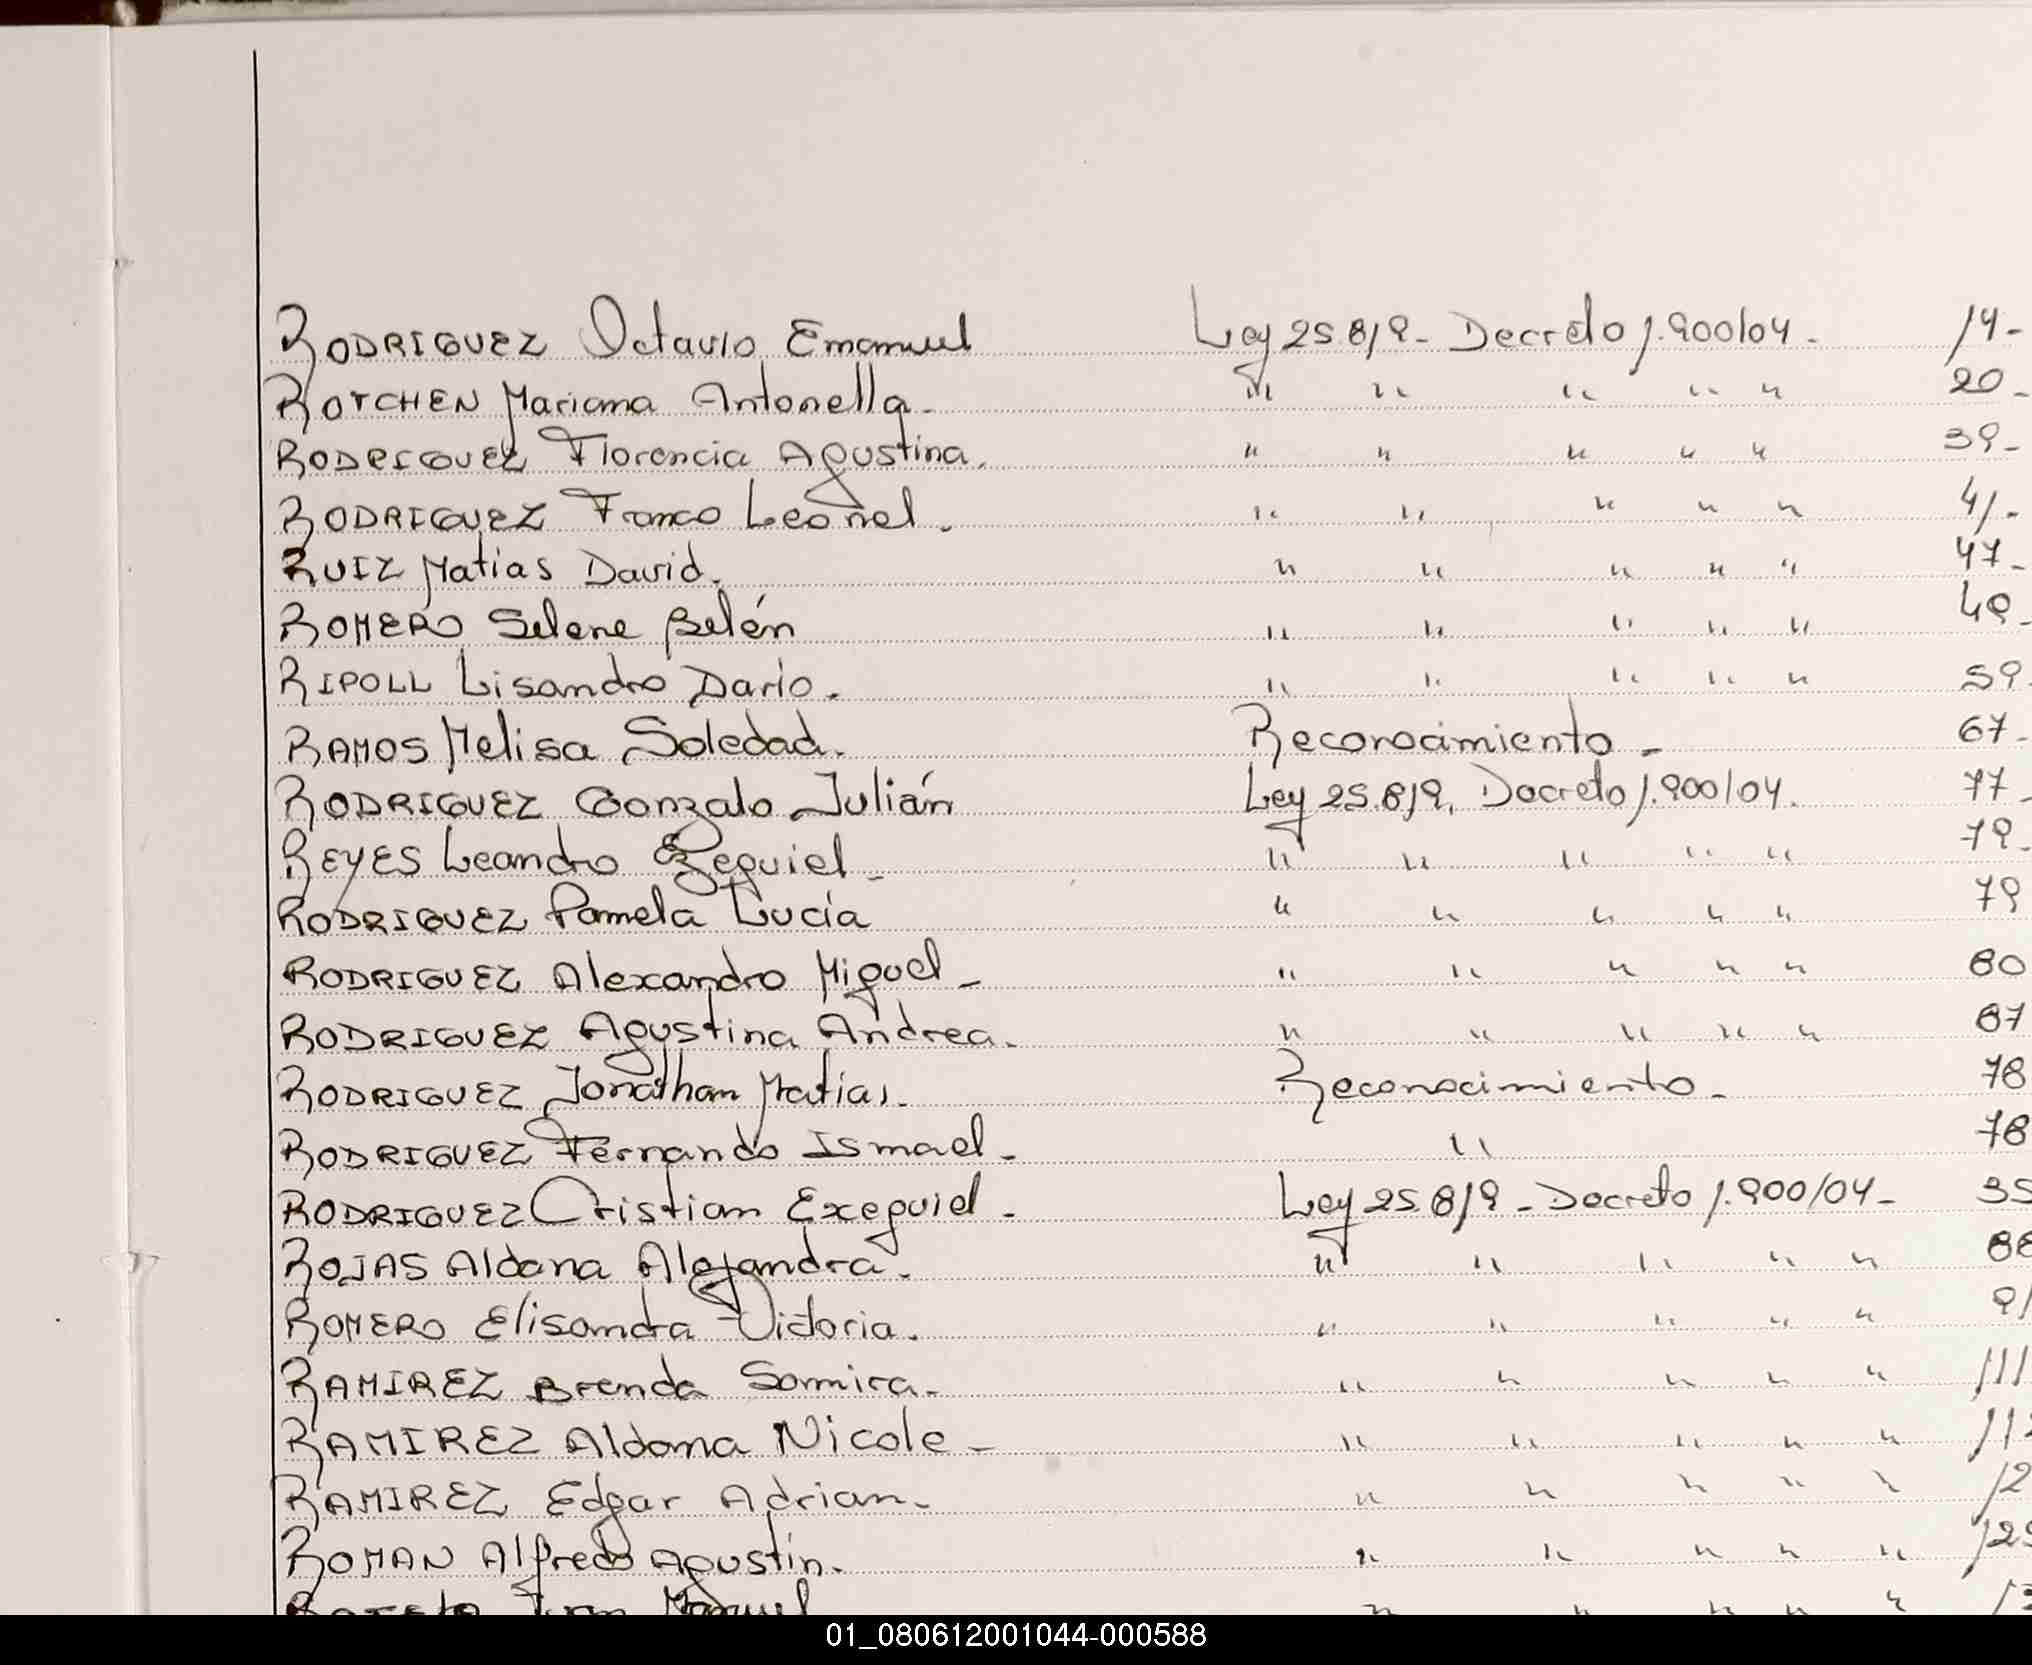 RODRIGUEZ Octavio Emanuel Ley 25.819- Decreto 1.900/04.- 14-
ROTCHEN Mariana Antonella.- " " " " " 20-
RODRIGUEZ Florencia Agustina. " " " " " 39-
RODRIGUEZ Franco Leonel. " " " " " 41.-
RUIZ Matias David. " " " " " 47-
ROMERO Selene Belén " " " " " 49-
RIPOLL Lisandro Dario. " " " " " 59-
RAMOS Melisa Soledad. Reconocimiento- 67-
RODRIGUEZ Gonzalo Julián Ley 25.819. Decreto 1.900/04. 77-
REYES Leandro Ezequiel- " " " " " 79-
RODRIGUEZ Pamela Lucía " " " " " 79
RODRIGUEZ Alexandro Miguel- " " " " " 80
RODRIGUEZ Agustina Andrea. " " " " " 87
RODRIGUEZ Jonathan Matias. Reconocimiento- 78
RODRIGUEZ Fernando Ismael- " 78
RODRIGUEZ Cristian Exequiel- Ley 25.819- Decreto 1.900/04- 35
ROJAS Aldana Alejandra. " " " " " 88
ROMERO Elisandra Victoria. " " " " " 91
RAMIREZ Brenda Samira. " " " " " 111
RAMIREZ Aldana Nicole- " " " " " 112
RAMIREZ Edgar Adrian- " " " " " 12
ROMAN Alfredo Agustín. " " " " " 125
Ivan Manuel " " " " " 13
01_080612001044-000588